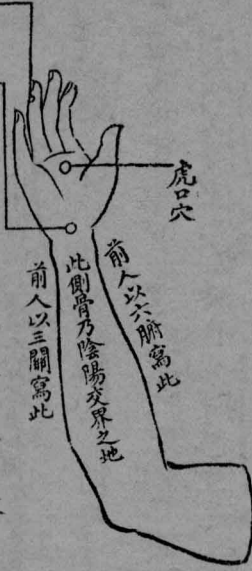 虎口穴
前人以六腑寫此
此側骨乃陰陽交界之地
前人以三關寫此